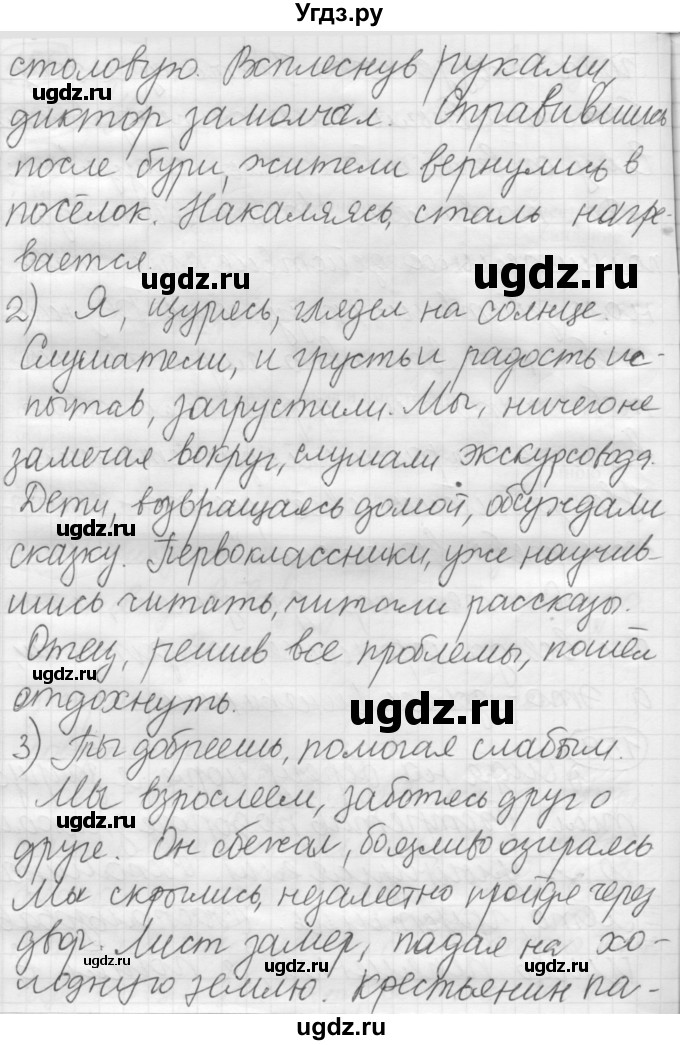 Угдз.ру
столовую. Всплеснув руками,
ugdz.ru
диктор замолчал. Оправившись
после бури, жители вернулись в
посёлок. Накаляясь, сталь нагре-
вается.
ugdz.ru ugdz.ru
2) Я, щурясь, глядел на солнце.
Слушатели, и грусть и радость ис-
пытав, загрустили. Мы, ничего не
замечая вокруг, слушали экскурсовода.
Дети, возвращаясь домой, обсуждали
ugdz.ru
сказку. Первоклассники, уже научив-
шись читать, читали рассказы.
Отец, решив все проблемы, пошёл
ugdz.ru
отдохнуть.
ugdz.ru
3) Ты добреешь, помогая слабым.
Мы взрослеем, заботясь друг о
ugdz.ru
друге. Он сбежал, боязливо озираясь
Мы скрылись, незаметно пройдя через
двор. Лист замер, падая на хо-
ugdz.ru ugdz.ru
лодную землю. Крестьянин па-
ugdz.ru